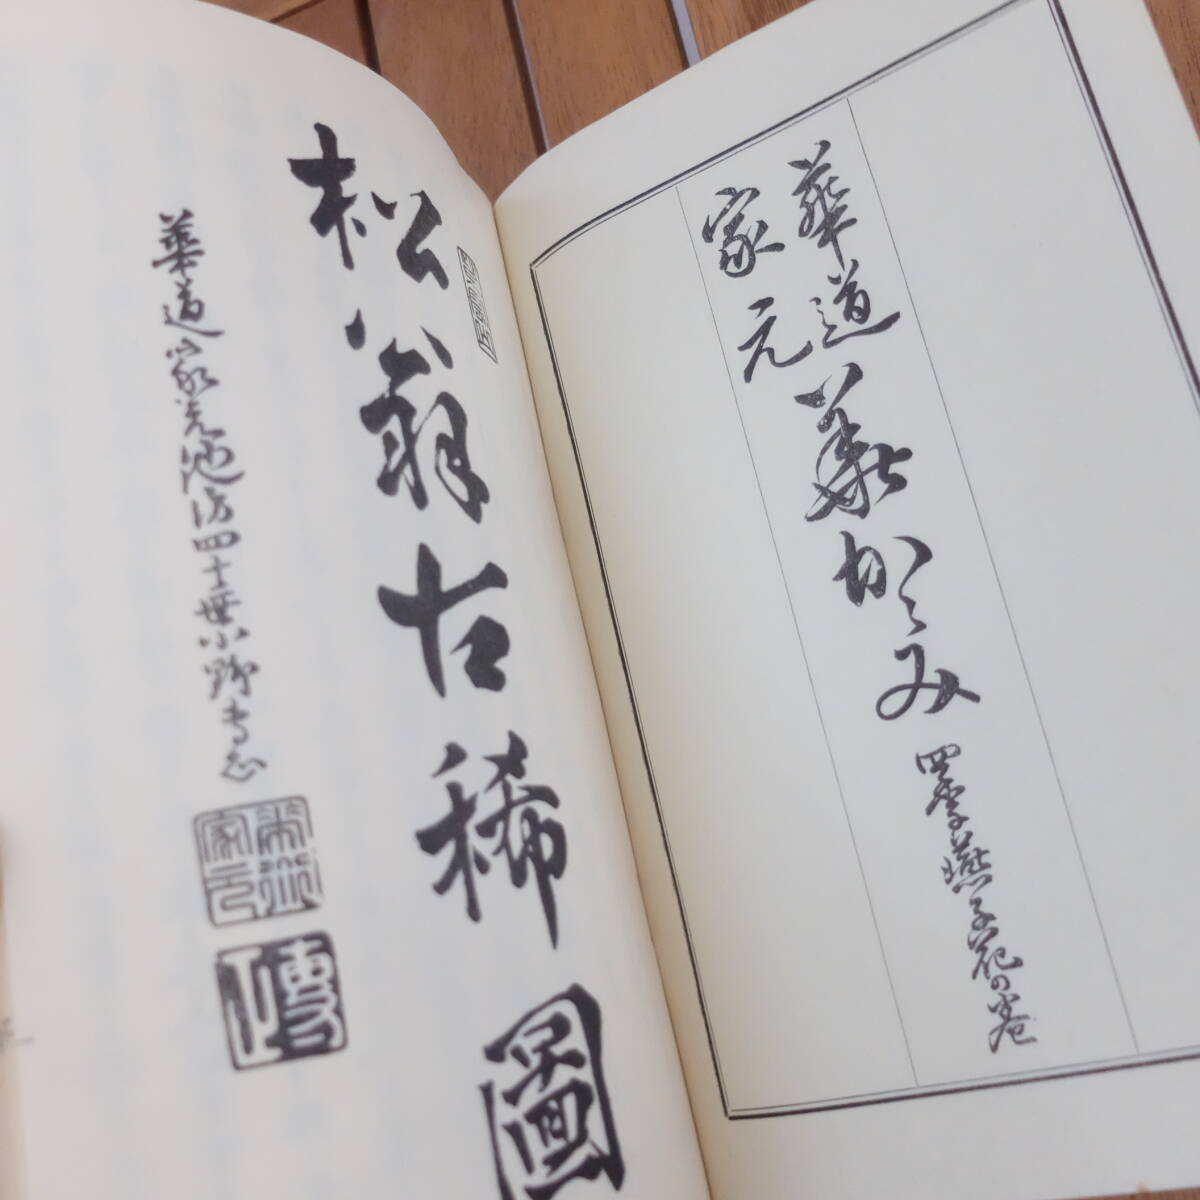 華道
家元
華かゞみ
四季燕子花の巻
松翁古稀圖
華道家元池坊四十世小野専志
家元